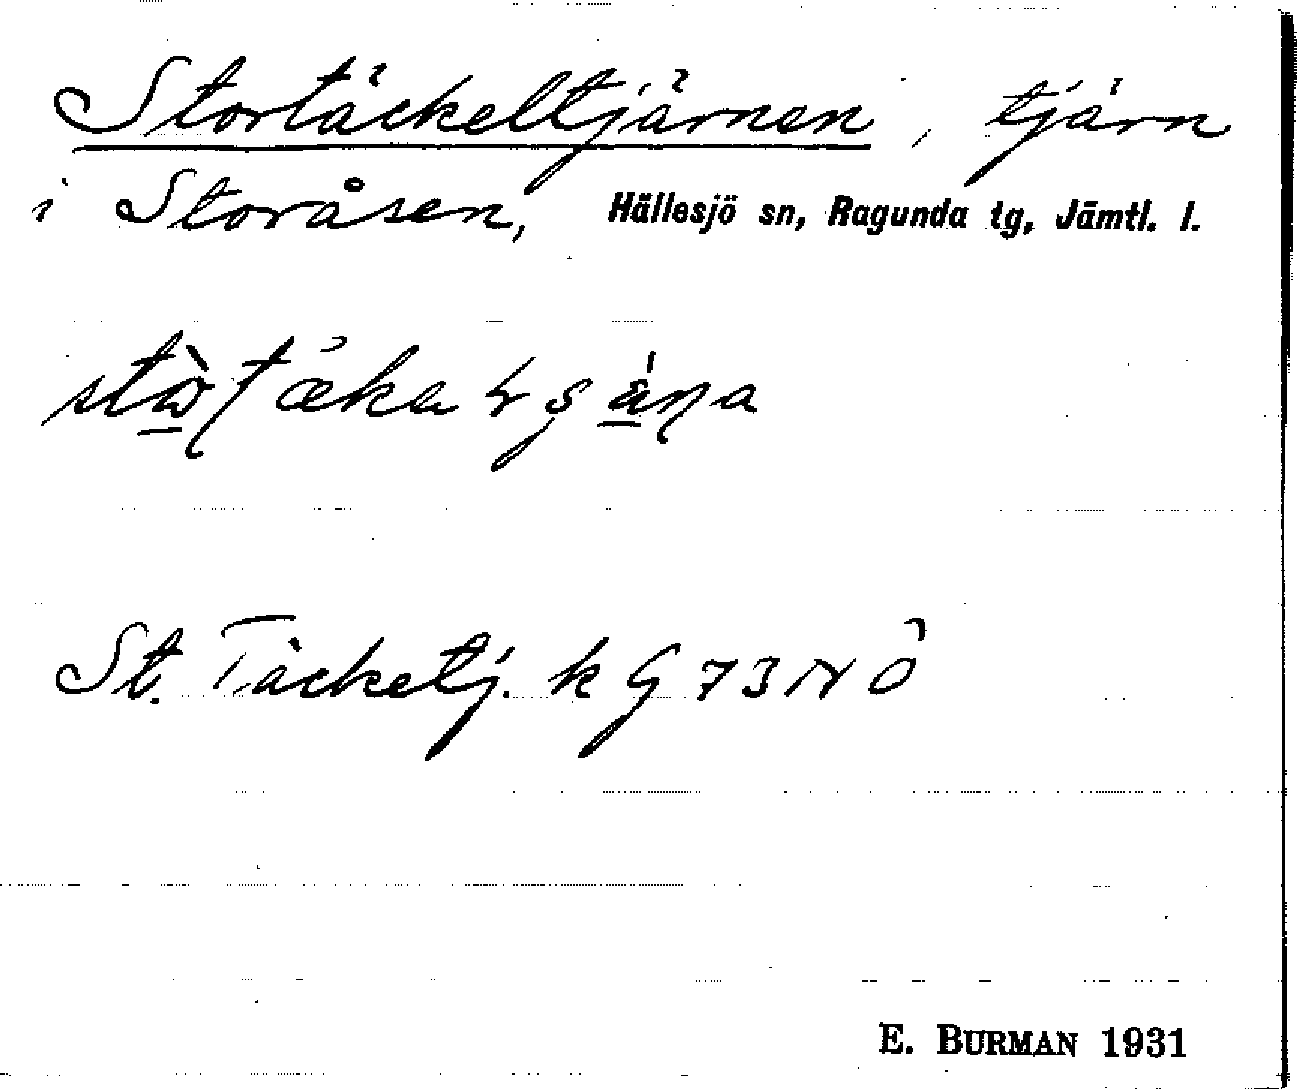 Stortäckeltjärnen, tjärn
i Storåsen, Hällesjö sn, Ragunda tg, Jämtl. l.
St. Täcketj. k G 73 NÖ
E. BURMAN 1931